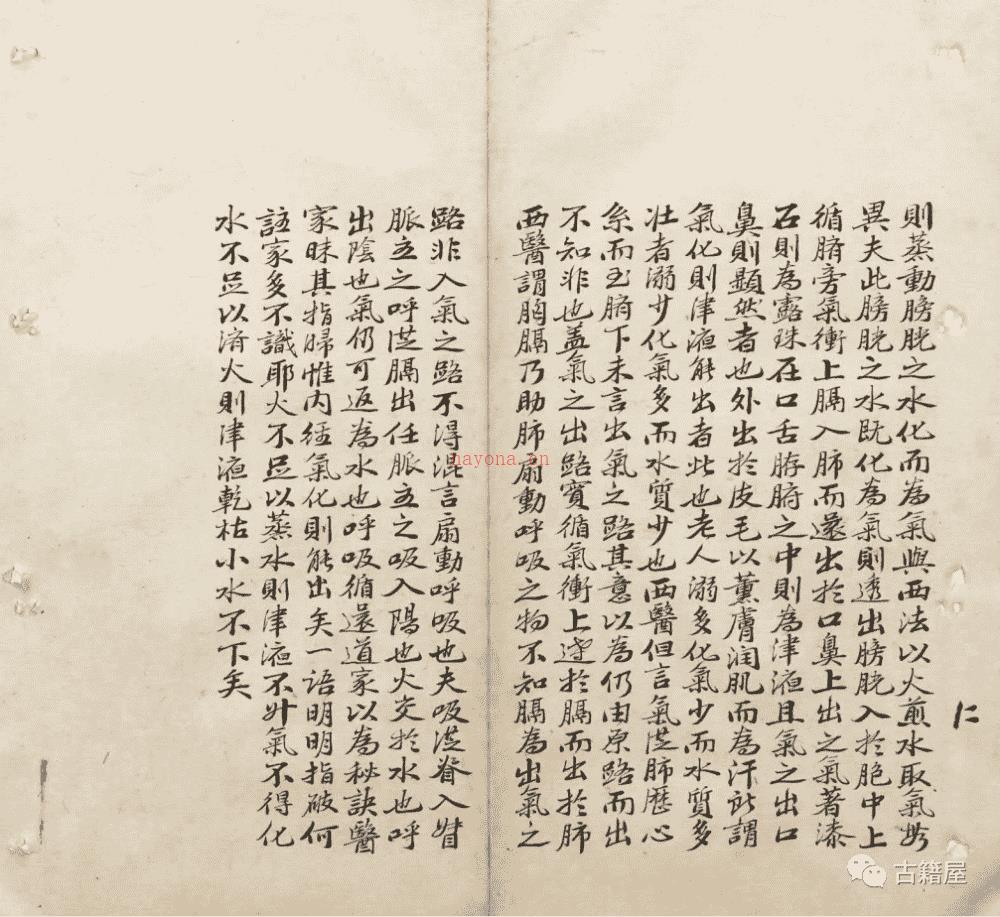 則蒸動膀胱之水化而為氣與西法以火煎水取氣無
異夫此膀胱之水既化為氣則透出膀胱入於胞中上
循臍旁氣衝上膈入肺而還出於口鼻上出之氣著漆
石則為露珠在口舌脖腑之中則為津液且氣之出口
鼻則顯然者也外出於皮毛以薰膚润肌而為汗所謂
氣化則津液能出者此也老人溺多化氣少而水質多
壮者溺少化氣多而水質少也西醫但言氣從肺歷心
系而至臍下未言出氣之路其意以為仍由原路而出
不知非也盖氣之出路實循氣衝上達於膈而出於肺
西醫謂胸膈乃助肺扇動呼吸之物不知膈為出氣之
路非入氣之路不得混言扇動呼吸也夫吸從脊入督
脈主之呼從膈出任脈主之吸入陽也火交於水也呼
出陰也氣仍可返為水也呼吸循還道家以為秘訣醫
家昧其指歸惟内經氣化則能出矣一语明明指破何
註家多不識耶火不足以蒸水則津液不升氣不得化
水不足以済火則津液乾枯小水不下矣
仁
nayona.cn
古籍屋